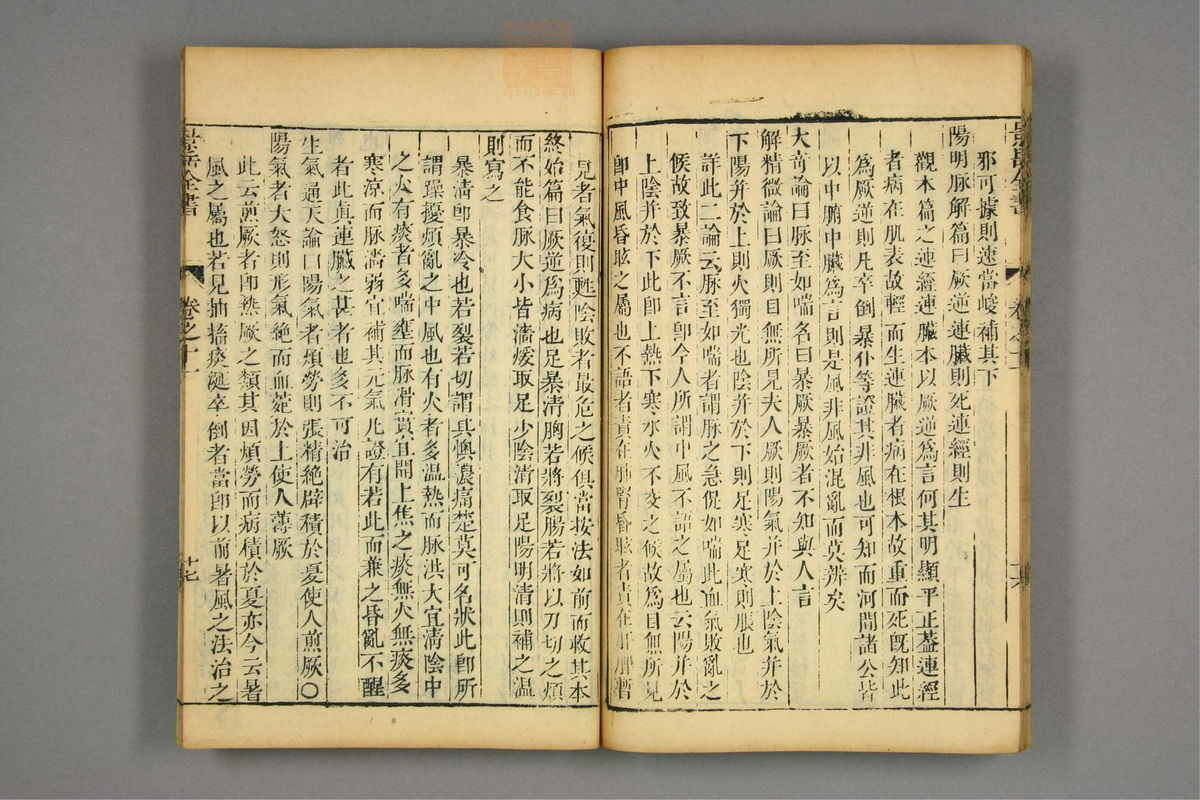 邪可據則速當峻補其下
陽明脉解篇曰厥逆連臟則死連經則生
觀本篇之連經連臟本以厥逆爲言何其明顯平正葢連經
者病在肌表故輕而生連臟者病在根本故重而死旣知此
爲厥逆則凡卒倒暴仆等證其非風也可知而河間諸公皆
以中腑中臟爲言則是風非風始混亂而莫辨矣
大竒論曰脉至如喘名曰暴厥暴厥者不知與人言
解精微論曰厥則目無所見夫人厥則陽氣并於上陰氣并於
下陽并於上則火獨光也陰并於下則足寒足寒則脹也
詳此二論云脉至如喘者謂脉之急促如喘此血氣敗亂之
候故致暴厥不言卽今人所謂中風不語之屬也云陽并於
上陰并於下此卽上熱下寒水火不交之候故爲目無所見
卽中風昏眩之屬也不語者責在肺腎昏眩者責在肝脾暫
見者氣復則甦陰敗者最危之候俱當按法如前而救其本
終始篇曰厥逆爲病也足暴清胸若將裂腸若將以刀切之煩
而不能食脉大小皆濇煖取足少陰清取足陽明清則補之温
則寫之
暴清卽暴冷也若裂若切謂其懊憹痛楚莫可名狀此卽所
謂躁擾煩亂之中風也有火者多温熱而脉洪大宜清陰中
之火有痰者多喘壅而脉滑實宜開上焦之痰無火無痰多
寒涼而脉濇弱宜補其元氣凡證有若此而兼之昏亂不醒
者此眞連臟之甚者也多不可治
生氣通天論曰陽氣者煩勞則張精絶辟積於夏使人煎厥〇
陽氣者大怒則形氣絶而血菀於上使人薄厥
此云煎厥者卽熱厥之類其因煩勞而病積於夏亦今云暑
風之屬也若見抽搐痰涎卒倒者當卽以前暑風之法治之
景岳全書
卷之十一